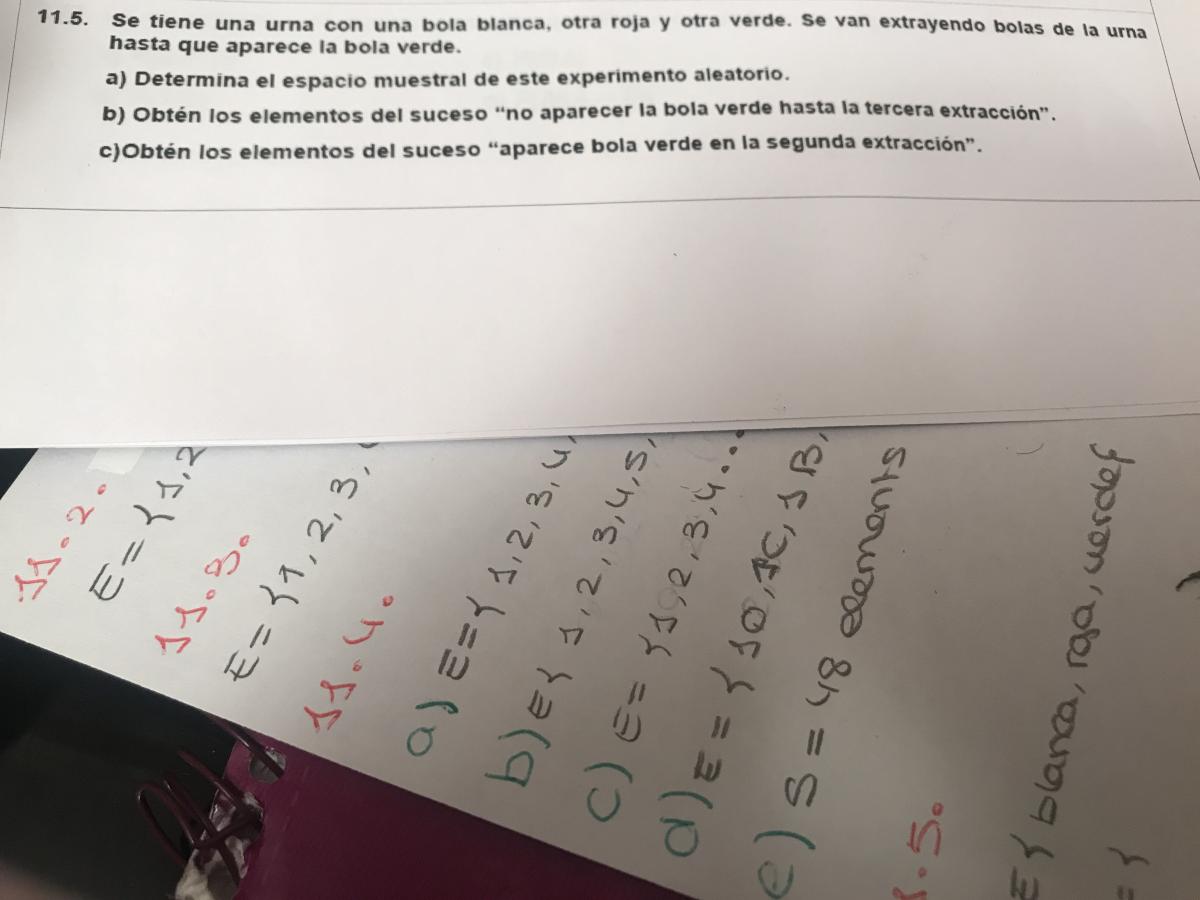 11.5. Se tiene una urna con una bola blanca, otra roja y otra verde. Se van extrayendo bolas de la urna
hasta que aparece la bola verde.
a) Determina el espacio muestral de este experimento aleatorio.
b) Obtén los elementos del suceso “no aparecer la bola verde hasta la tercera extracción”.
c)Obtén los elementos del suceso “aparece bola verde en la segunda extracción”.
11.2.
E={1,2
11.3.
E={1,2,3,
11.4.
a) E={1,2,3,4,
b) E{1,2,3,4,5,
c) E={1,2,3,4...
d) E={10,1C,1B,
e) S=48 elements
1.5.
E{blanca, roja, verde}
={